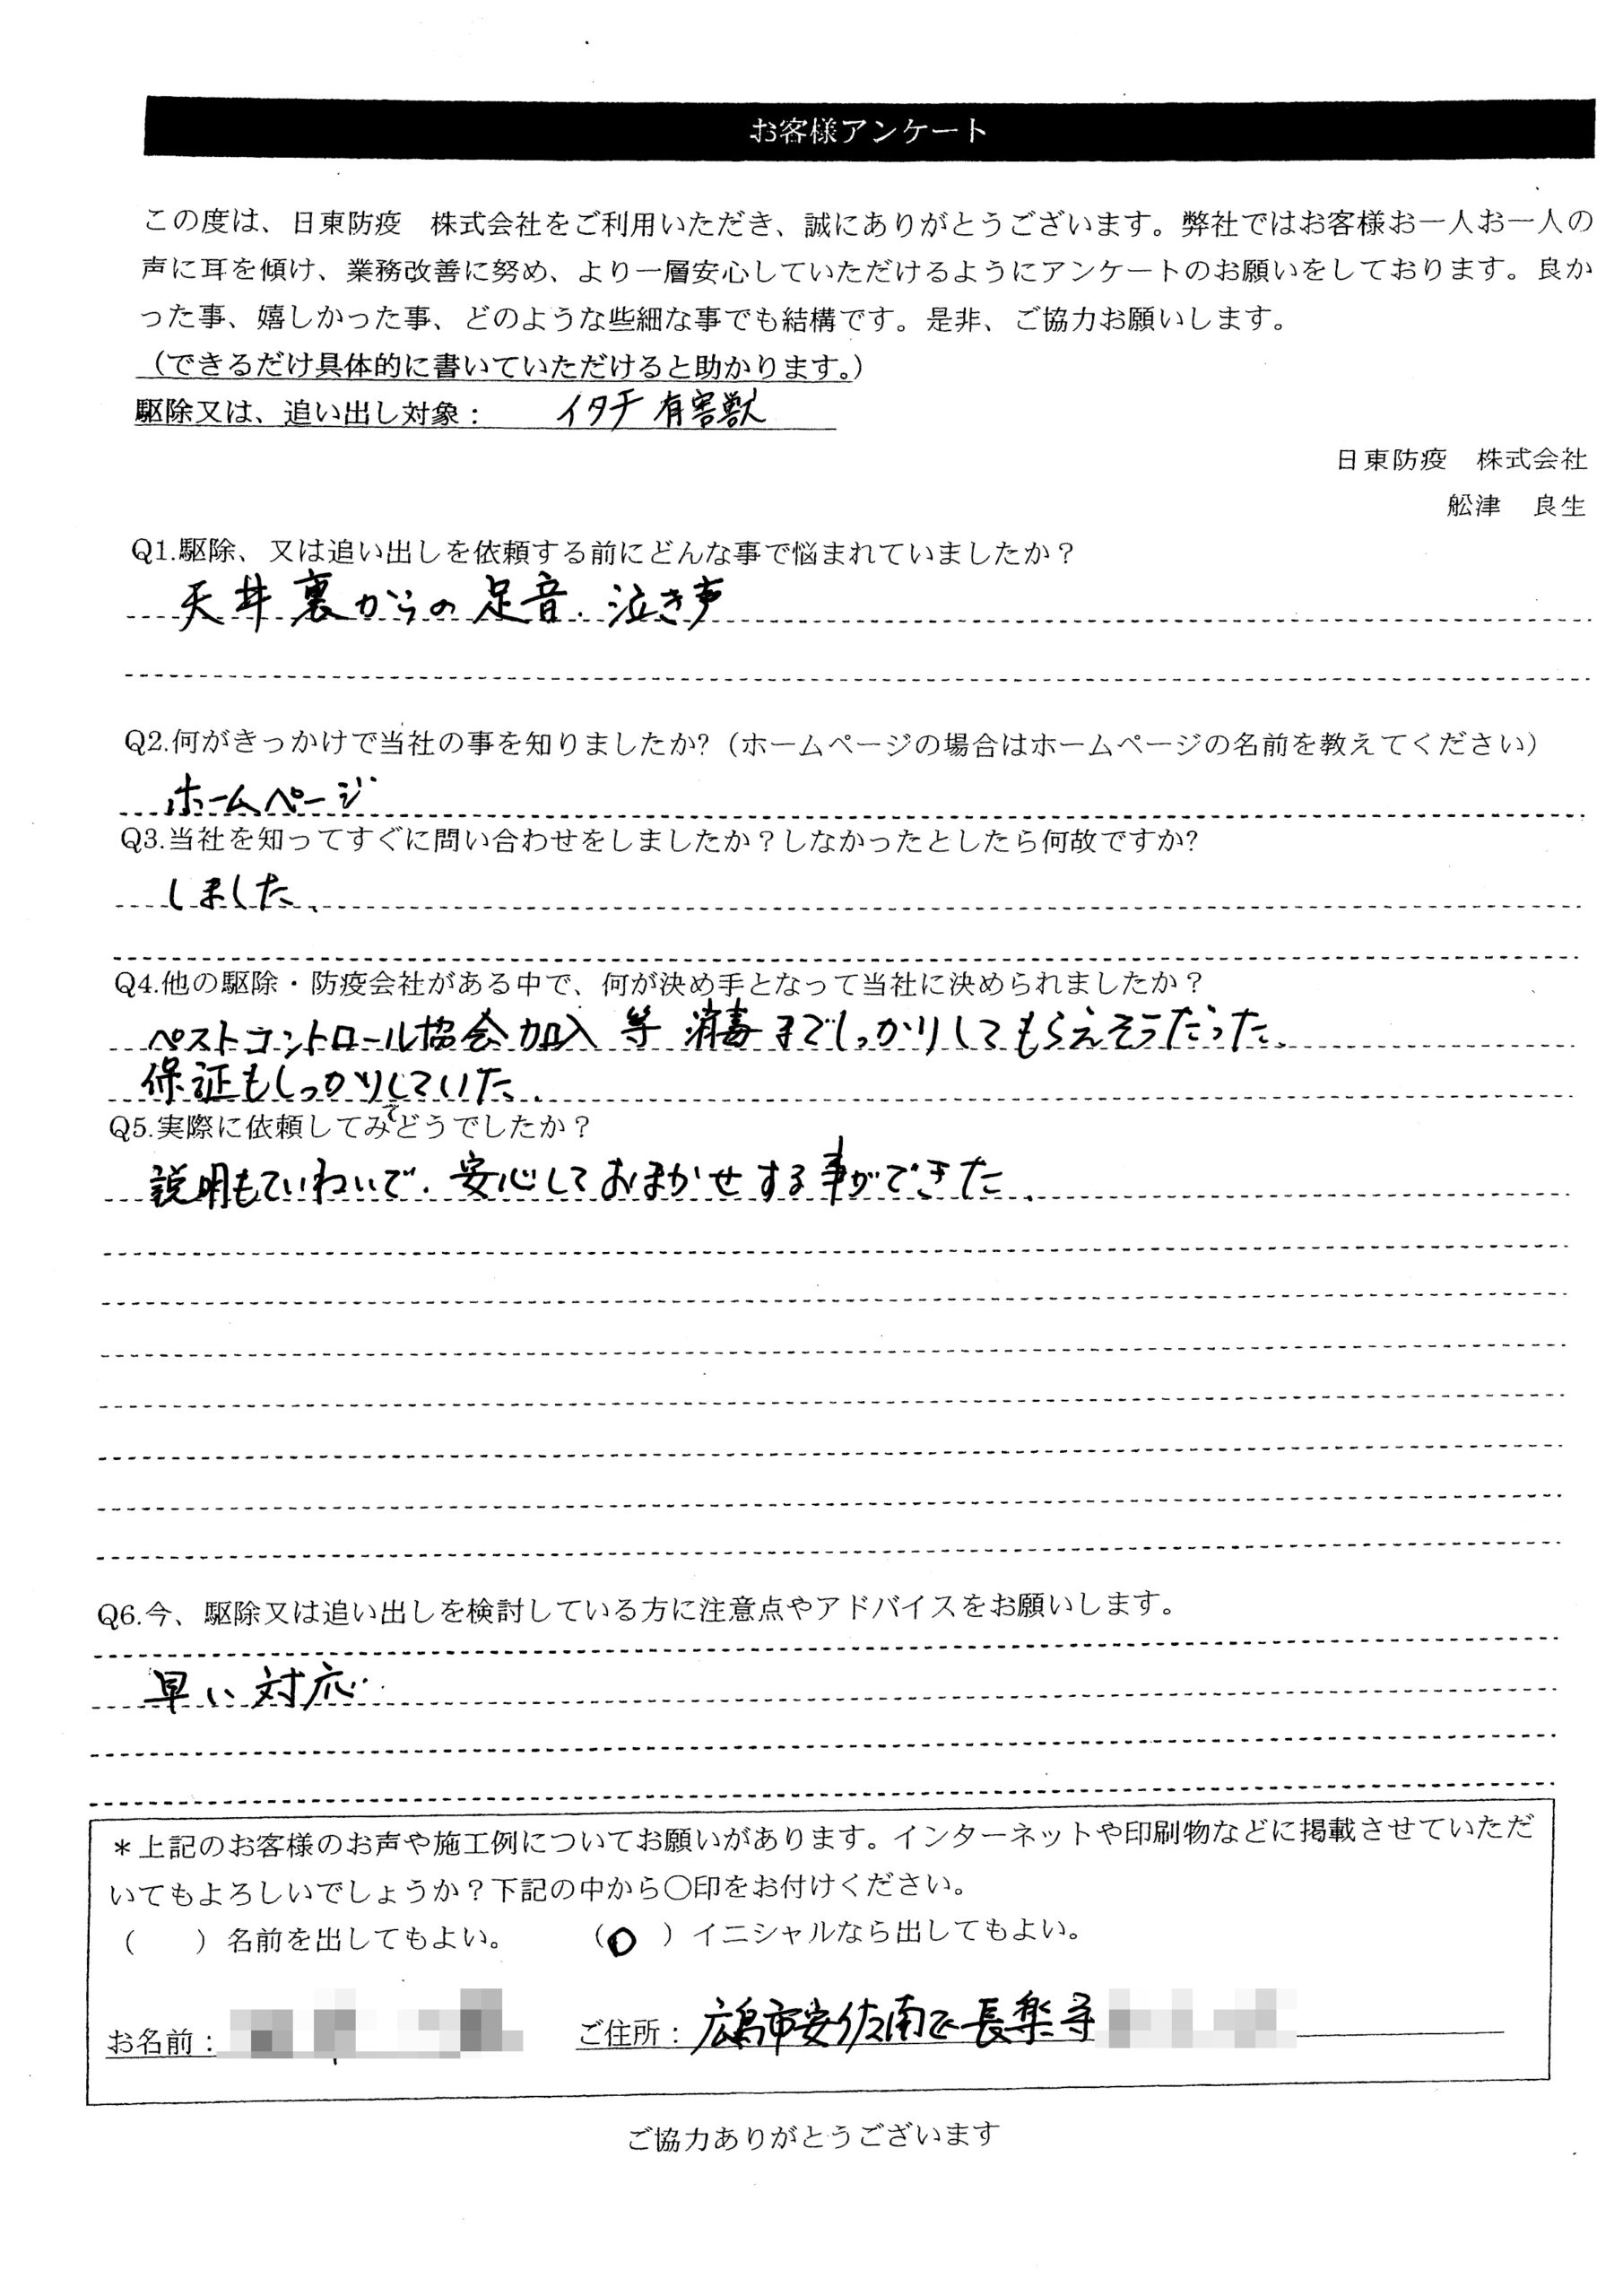 お客様アンケート
この度は、日東防疫　株式会社をご利用いただき、誠にありがとうございます。弊社ではお客様お一人お一人の
声に耳を傾け、業務改善に努め、より一層安心していただけるようにアンケートのお願いをしております。良か
った事、嬉しかった事、どのような些細な事でも結構です。是非、ご協力お願いします。
（できるだけ具体的に書いていただけると助かります。）
駆除又は、追い出し対象：　イタチ 有害獣
日東防疫　株式会社
舩津　良生
Q1.駆除、又は追い出しを依頼する前にどんな事で悩まれていましたか？
天井裏からの足音、泣き声
Q2.何がきっかけで当社の事を知りましたか?（ホームページの場合はホームページの名前を教えてください）
ホームページ
Q3.当社を知ってすぐに問い合わせをしましたか？しなかったとしたら何故ですか?
しました、
Q4.他の駆除・防疫会社がある中で、何が決め手となって当社に決められましたか？
ペストコントロール協会加入 等 消毒までしっかりしてもらえそうだった、
保証もしっかりしていた、
Q5.実際に依頼してみてどうでしたか？
説明もていねいで、安心しておまかせする事ができた、
Q6.今、駆除又は追い出しを検討している方に注意点やアドバイスをお願いします。
早い対応
＊上記のお客様のお声や施工例についてお願いがあります。インターネットや印刷物などに掲載させていただ
いてもよろしいでしょうか？下記の中から〇印をお付けください。
（　　）名前を出してもよい。　　（〇　）イニシャルなら出してもよい。
お名前：　　ご住所：広島市安佐南区長楽寺
ご協力ありがとうございます